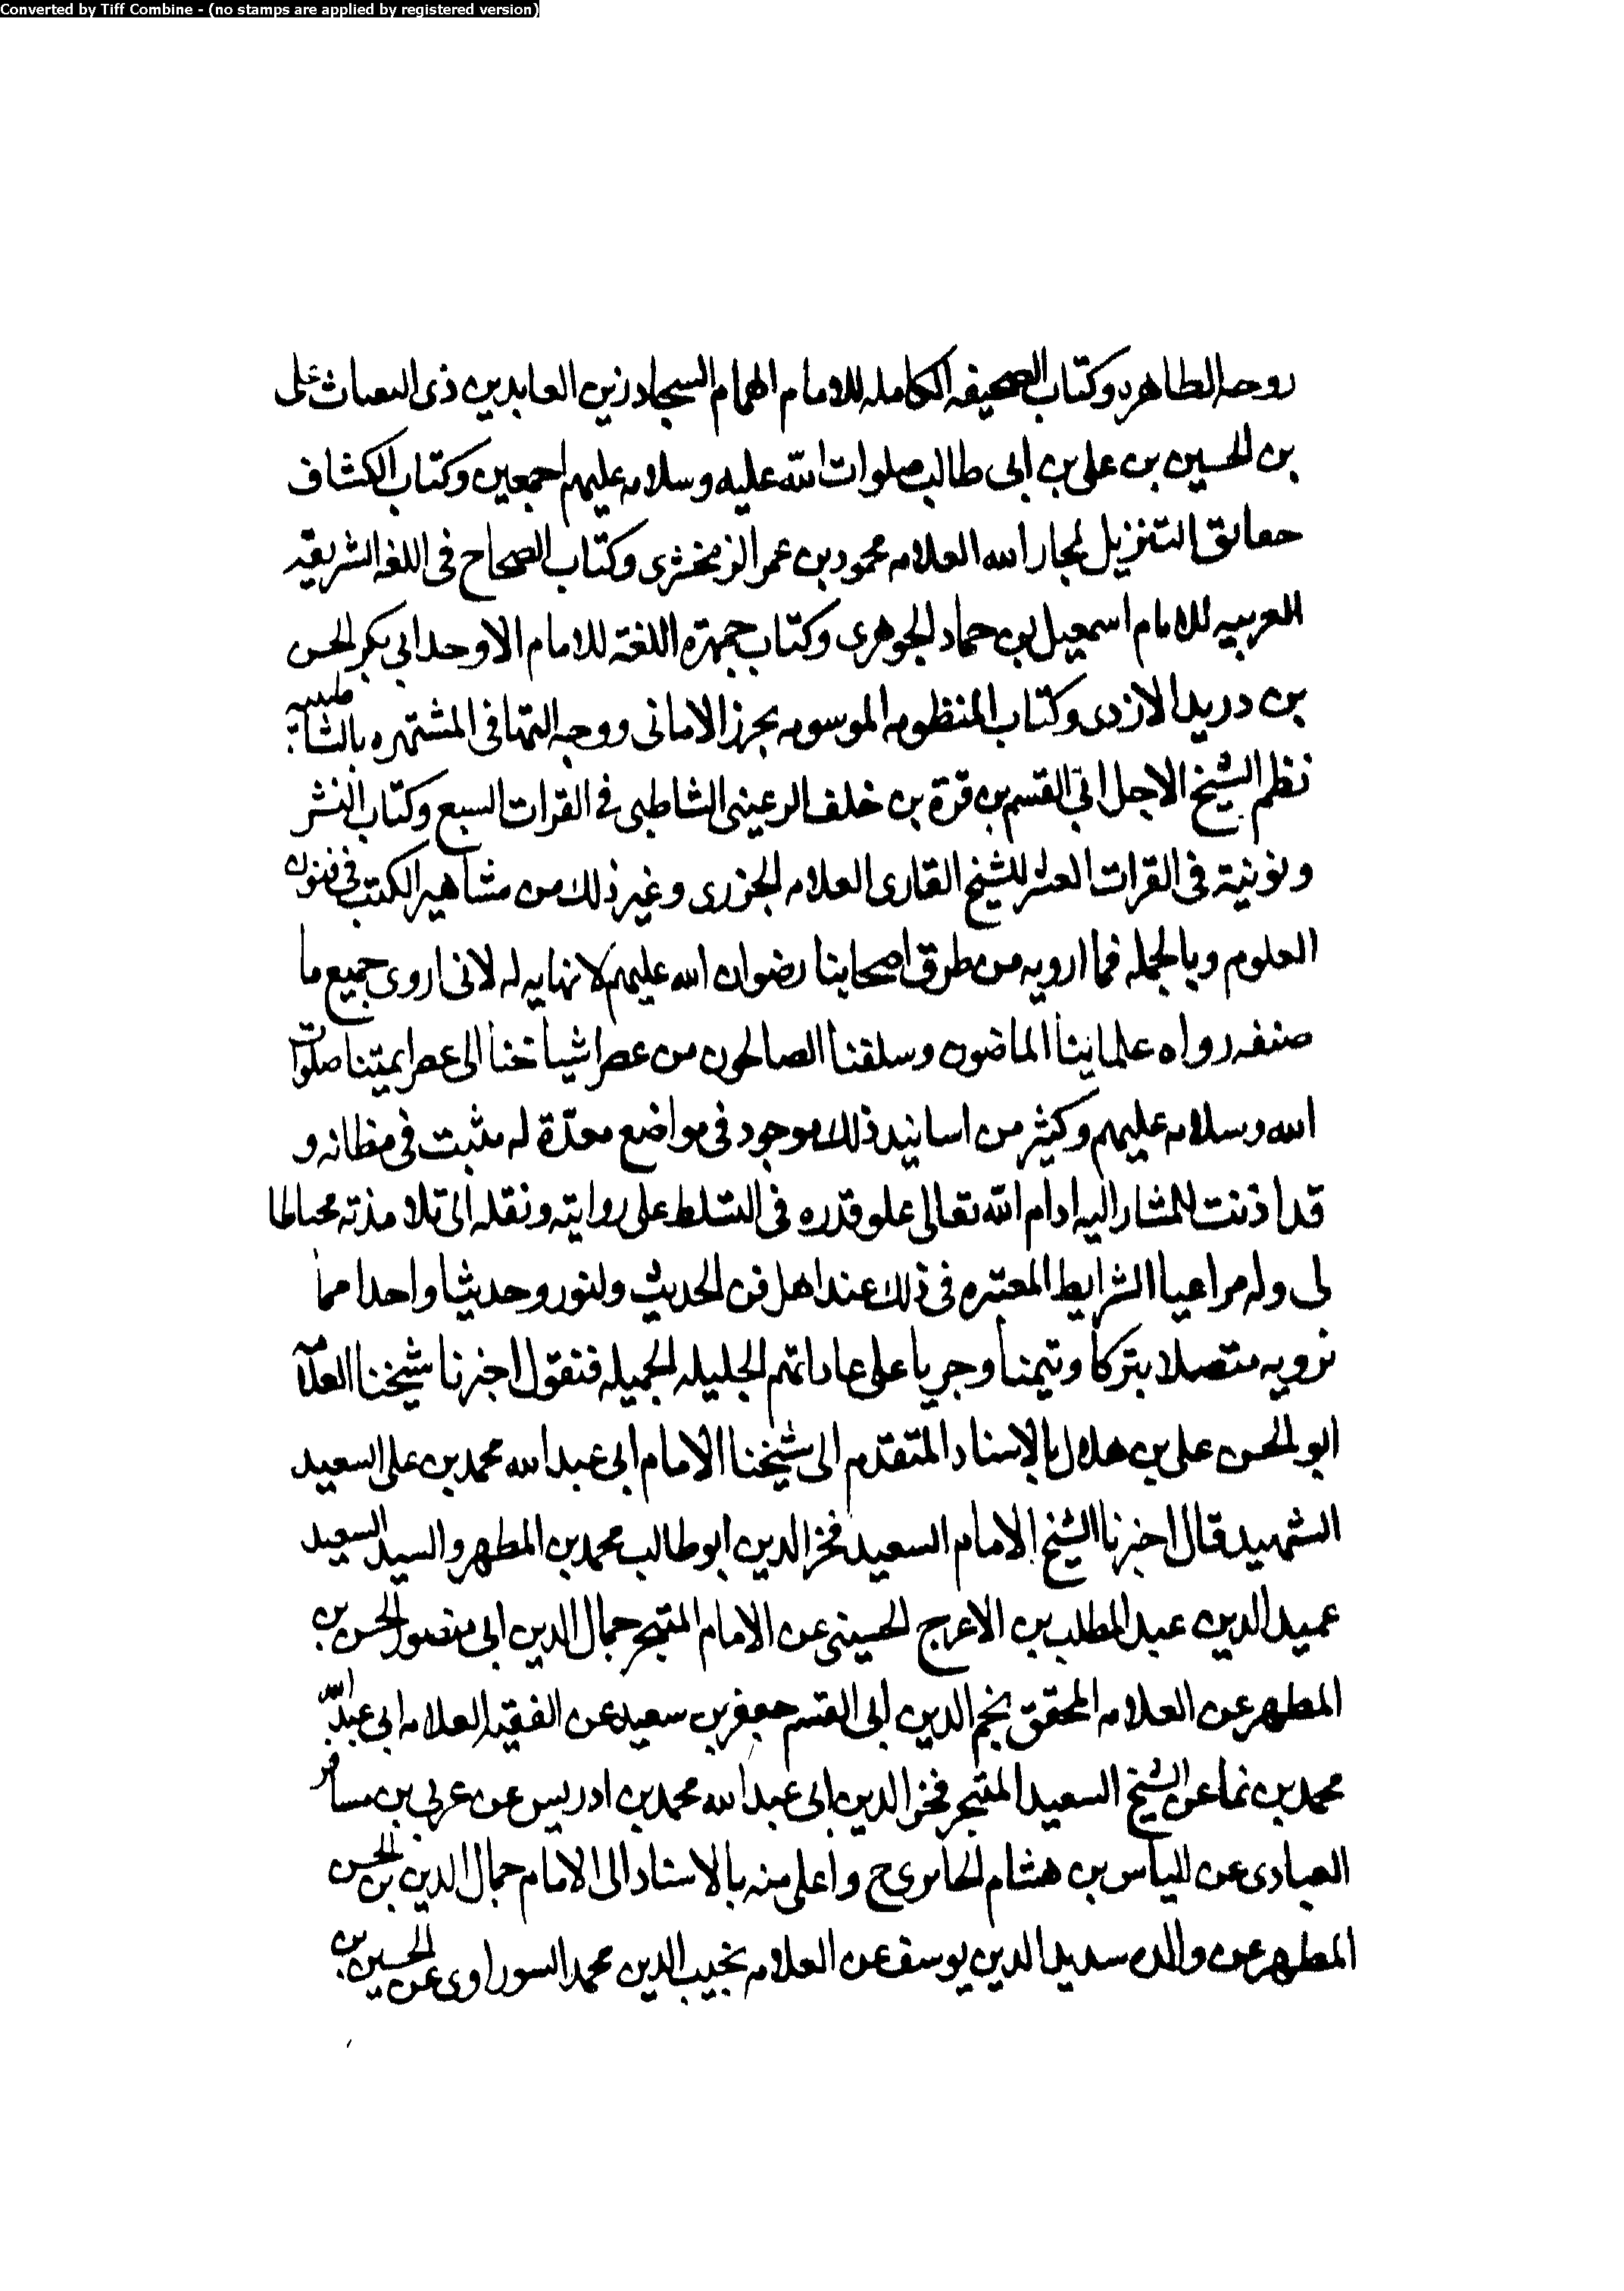 Converted by Tiff Combine - (no stamps are applied by registered version)
روحه الطاهره وكتاب الصحيفه الكامله للامام الهمام السجاد زين العابدين ذى الثفنات على
بن الحسين بن على بن ابى طالب صلوات الله عليه وسلامه عليهم اجمعين وكتاب الكشاف
حقائق التنزيل لجار الله العلامه محمود بن عمر الزمخشرى وكتاب الصحاح فى اللغه الشريقه
العربيه للامام اسمعيل بن حماد الجوهرى وكتاب جمهرة اللغة للامام الاوحد ابى بكر الحسن
بن دريد الازدى وكتاب المنظومه الموسومه بحرز الامانى ووجه التهافى المشتهره بالشاطبيه
نظم الشيخ الاجل ابى القسم بن قرة بن خلف الرعينى الشاطبى فى القرات السبع وكتاب النشر
ونونية فى القرات العشر للشيخ القارى العلامه الجزرى وغير ذلك من مشاهير الكتب فى فنون
العلوم وبالجمله فما ارويه من طرق اصحابنا رضوان الله عليهم لا نهايه له لانى اروى جميع ما
صنفه رواه علمايناا الماضون وسلفنا الصالحون من عصر اشياخنا الى عصر ايمتنا صلوات
الله وسلامه عليهم وكثير من اسانيد ذلك موجود فى مواضع معدّة له مثبت فى مظانه و
قد اذنت للمشار اليه ادام الله تعالى علو قدره فى التسلط على روايته ونقله الى تلامذته محتاطا
لى وله مراعيا الشرايط المعتبره فى ذلك عند اهل فن الحديث ولنورد حديثا واحدا مما
نرويه متصلا تبركا وتيمنا وجريا على عاداتهم الجليله الجميله فنقول اخبرنا شيخنا العلامه
ابو الحسن على بن هلال بالاسناد المتقدم الى شيخنا الامام ابى عبد الله محمد بن على السعيد
الشهيد قال اخبرنا الشيخ الامام السعيد فخر الدين ابو طالب محمد بن المطهر والسيد السعيد
عميد الدين عبد المطلب بن الاعرج الحسينى عن الامام المتبحر جمال الدين ابى منصور الحسن بن
المطهر عن العلامه المحقق نجم الدين ابى القسم جعفر بن سعيد عن الفقيه العلامه ابى عبد الله
محمد بن نما عن الشيخ السعيد المتبحر فخر الدين ابى عبد الله محمد بن ادريس عن عربى بن مسافر
العبادى عن الياس بن هشام الحائرى ح واعلى منه بالاسناد الى الامام جمال الدين بن الحسن
المطهر عن والده سديد الدين يوسف عن العلامه نجيب الدين محمد السوراوى عن الحسين بن